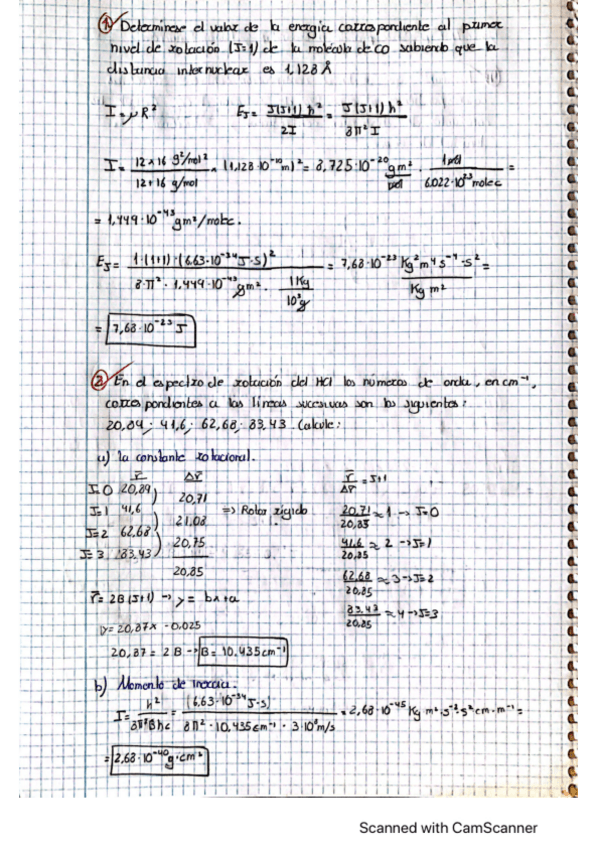 ① Determínese el valor de la energía correspondiente al primer
nivel de rotación (J=1) de la molécula de CO sabiendo que la
distancia internuclear es 1,128 Å
I = μR²   E_J = J(J+1)ħ² / 2I = J(J+1)h² / 8π²I
I = 12×16 g²/mol² / 12+16 g/mol × (1,128·10⁻¹⁰ m)² = 8,725·10⁻²⁰ gm²/mol · 1 mol / 6.022·10²³ molec =
= 1,449·10⁻⁴³ gm²/molec.
E_J = 1·(1+1)·(6.63·10⁻³⁴ J·s)² / 8·π²·1,449·10⁻⁴³ gm² · 1 Kg / 10³ g = 7,68·10⁻²³ Kg² m⁴ s⁻⁴·s² / Kg m² =
= 7,68·10⁻²³ J
② En el espectro de rotación del HCl los números de onda, en cm⁻¹,
correspondientes a las líneas sucesivas son los siguientes:
20,89; 41,6; 62,68; 83,43. Calcule:
a) la constante rotacional.
ν̄   Δν̄   ν̄/Δν̄ = J+1
J=0 20,89
20,71   20,71/20,85 ≈ 1 → J=0
J=1 41,6   => Rotor rígido
21,08   41,6/20,85 ≈ 2 → J=1
J=2 62,68
20,75   62,68/20,85 ≈ 3 → J=2
J=3 83,43
20,85   83,43/20,85 ≈ 4 → J=3
ν̄ = 2B(J+1) → y = bx+a
y = 20,87x - 0,025
20,87 = 2B → B = 10.435 cm⁻¹
b) Momento de Inercia.
I = h² / 8π²Bhc = (6.63·10⁻³⁴ J·s) / 8π²·10,435 cm⁻¹·3·10⁸ m/s = 2,68·10⁻⁴⁵ Kg m²·s⁻²·s² cm·m⁻¹ =
= 2,68·10⁻⁴⁰ g·cm²
Scanned with CamScanner